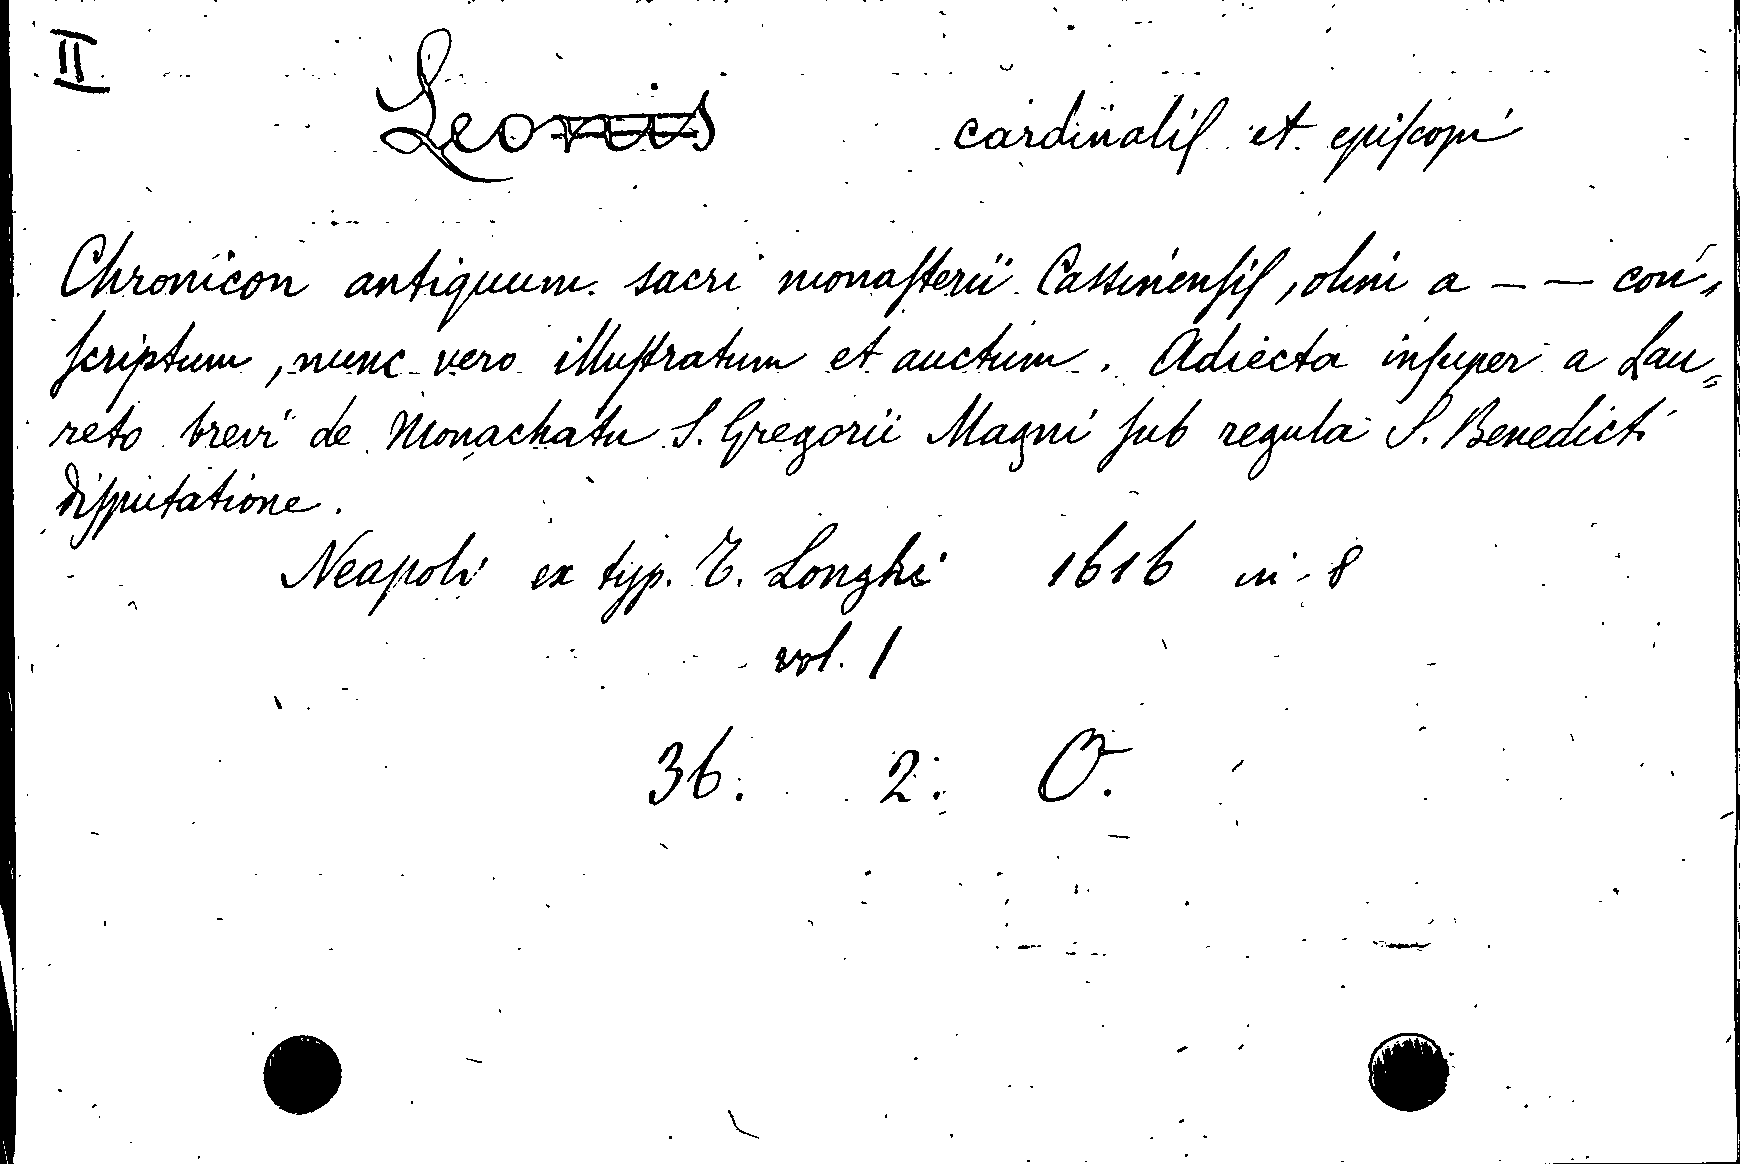 II
Leonis cardinaliſ et epiſcopi
Chronicon antiquum sacri monaſterii Cassinenſiſ, olim a — — con-
ſcriptum, nunc vero illuſtratum et auctum. Adiecta inſuper a Lau=
reto brevi de Monachatu S. Gregorii Magni ſub regula S. Benedicti
diſputatione.
Neapoli ex typ. T. Longhi 1616 in-8
vol. 1
36. 2. O.